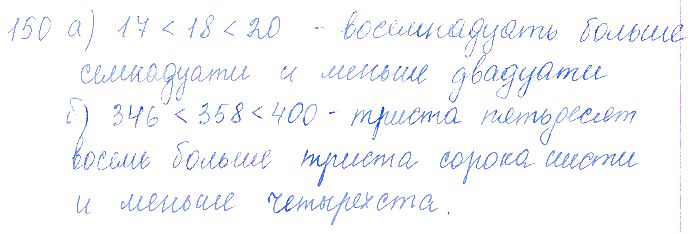 150 а) 17 < 18 < 20 - восемнадцать больше
семнадцати и меньше двадцати
б) 346 < 358 < 400 - триста пятьдесят
восемь больше триста сорока шести
и меньше четырехста.